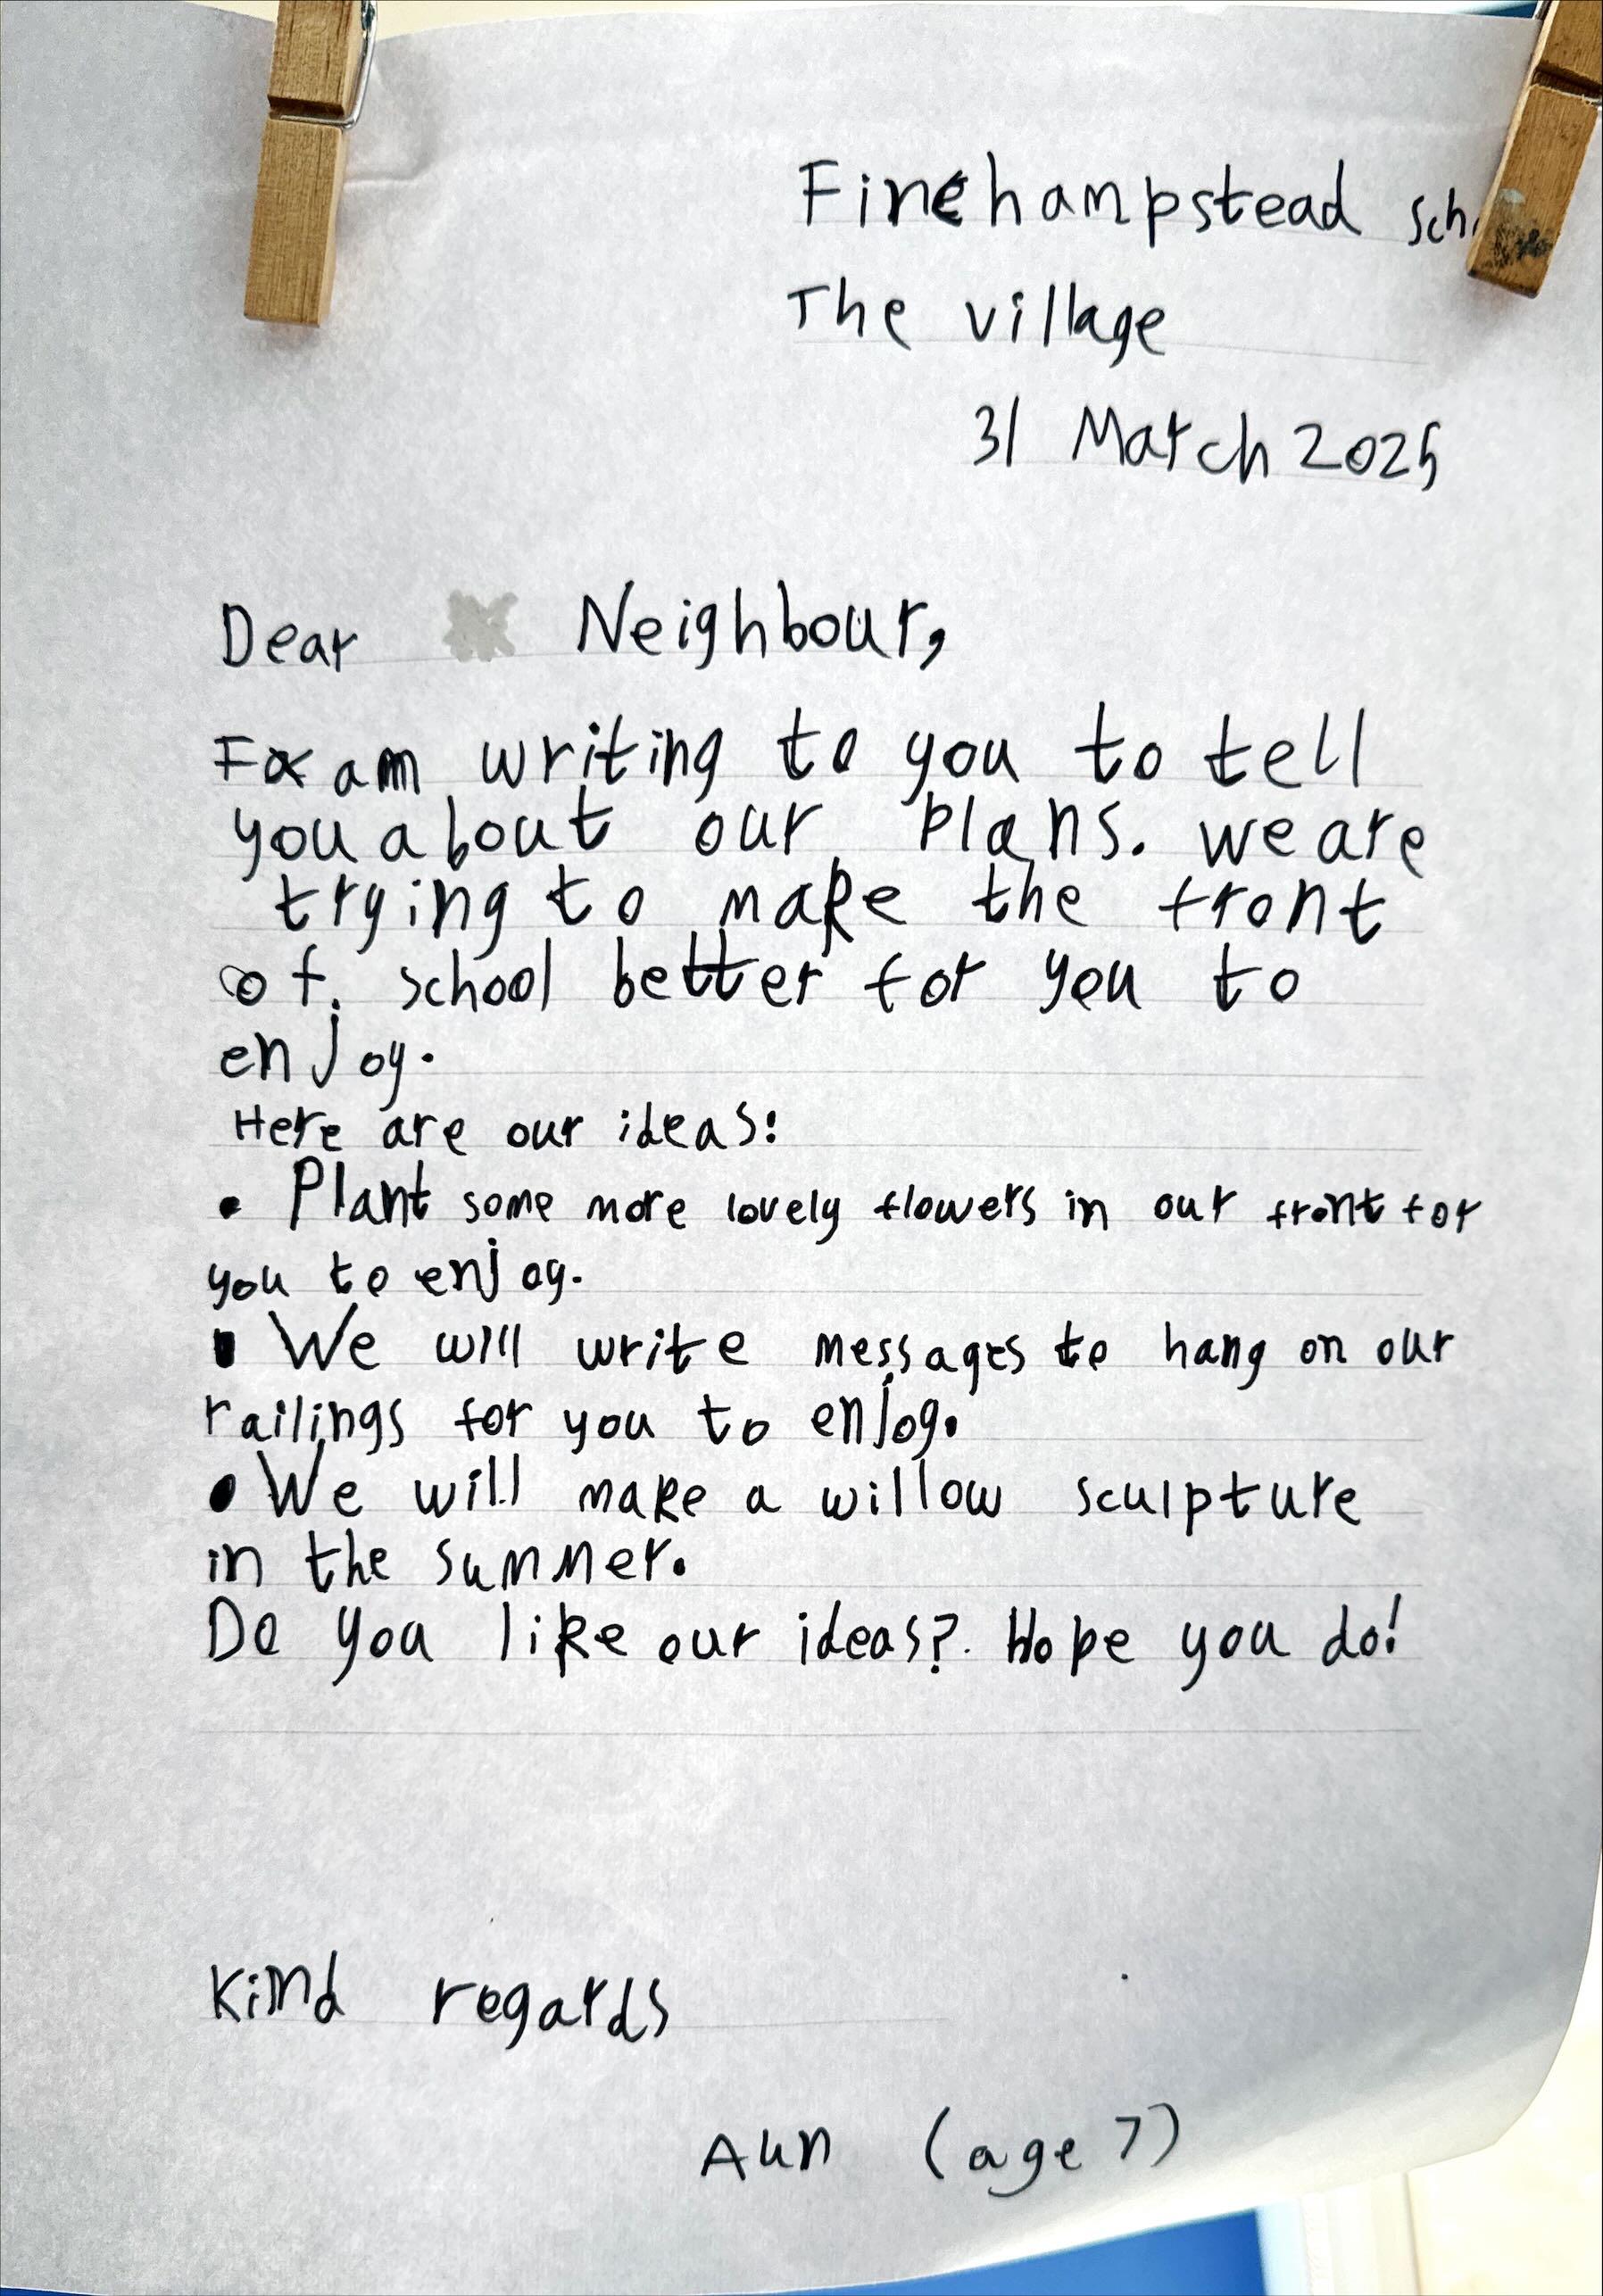 Finchampstead sch
The village
31 March 2025
Dear Neighbour,
I am writing to you to tell
you about our plans. we are
trying to make the front
of. school better for you to
enjoy.
Here are our ideas:
• Plant some more lovely flowers in our front for
you to enjoy.
• We will write messages to hang on our
railings for you to enjoy.
• We will make a willow sculpture
in the summer.
Do you like our ideas? Hope you do!
Kind regards
Aun (age 7)